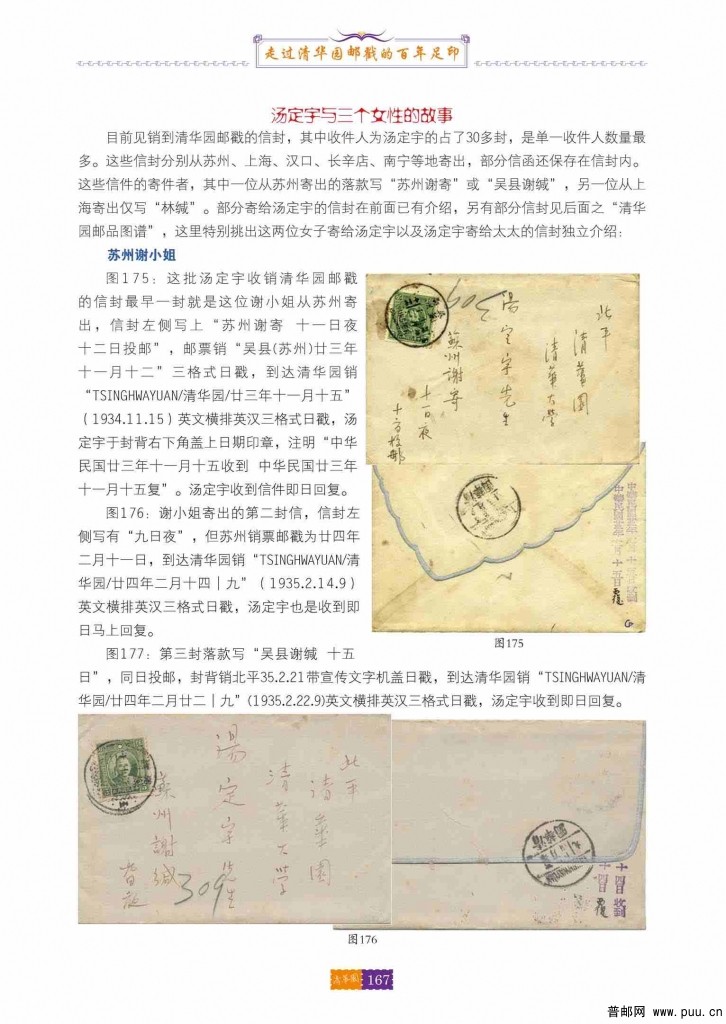 走过清华园邮戳的百年足印
汤定宇与三个女性的故事
目前见销到清华园邮戳的信封，其中收件人为汤定宇的占了30多封，是单一收件人数量最
多。这些信封分别从苏州、上海、汉口、长辛店、南宁等地寄出，部分信函还保存在信封内。
这些信件的寄件者，其中一位从苏州寄出的落款写“苏州谢寄”或“吴县谢缄”，另一位从上
海寄出仅写“林缄”。部分寄给汤定宇的信封在前面已有介绍，另有部分信封见后面之“清华
园邮品图谱”，这里特别挑出这两位女子寄给汤定宇以及汤定宇寄给太太的信封独立介绍：
苏州谢小姐
图175：这批汤定宇收销清华园邮戳
的信封最早一封就是这位谢小姐从苏州寄
出，信封左侧写上“苏州谢寄 十一日夜
十二日投邮”，邮票销“吴县(苏州)廿三年
十一月十二”三格式日戳，到达清华园销
“TSINGHWAYUAN/清华园/廿三年十一月十五”
（1934.11.15）英文横排英汉三格式日戳，汤
定宇于封背右下角盖上日期印章，注明“中华
民国廿三年十一月十五收到 中华民国廿三年
十一月十五复”。汤定宇收到信件即日回复。
图176：谢小姐寄出的第二封信，信封左
侧写有“九日夜”，但苏州销票邮戳为廿四年
二月十一日，到达清华园销“TSINGHWAYUAN/清
华园/廿四年二月十四｜九”（1935.2.14.9）
英文横排英汉三格式日戳，汤定宇也是收到即
日马上回复。
图177：第三封落款写“吴县谢缄 十五
日”，同日投邮，封背销北平35.2.21带宣传文字机盖日戳，到达清华园销“TSINGHWAYUAN/清
华园/廿四年二月廿二｜九”(1935.2.22.9)英文横排英汉三格式日戳，汤定宇收到即日回复。
北平
清華園
清華大學
湯定宇先生
蘇州謝寄
十一日夜
309
图175
北平
清華園
清華大學
湯定宇先生
蘇州謝緘
309
十四日收到
十四日
覆
图176
清华园
167
普邮网 www.puu.cn